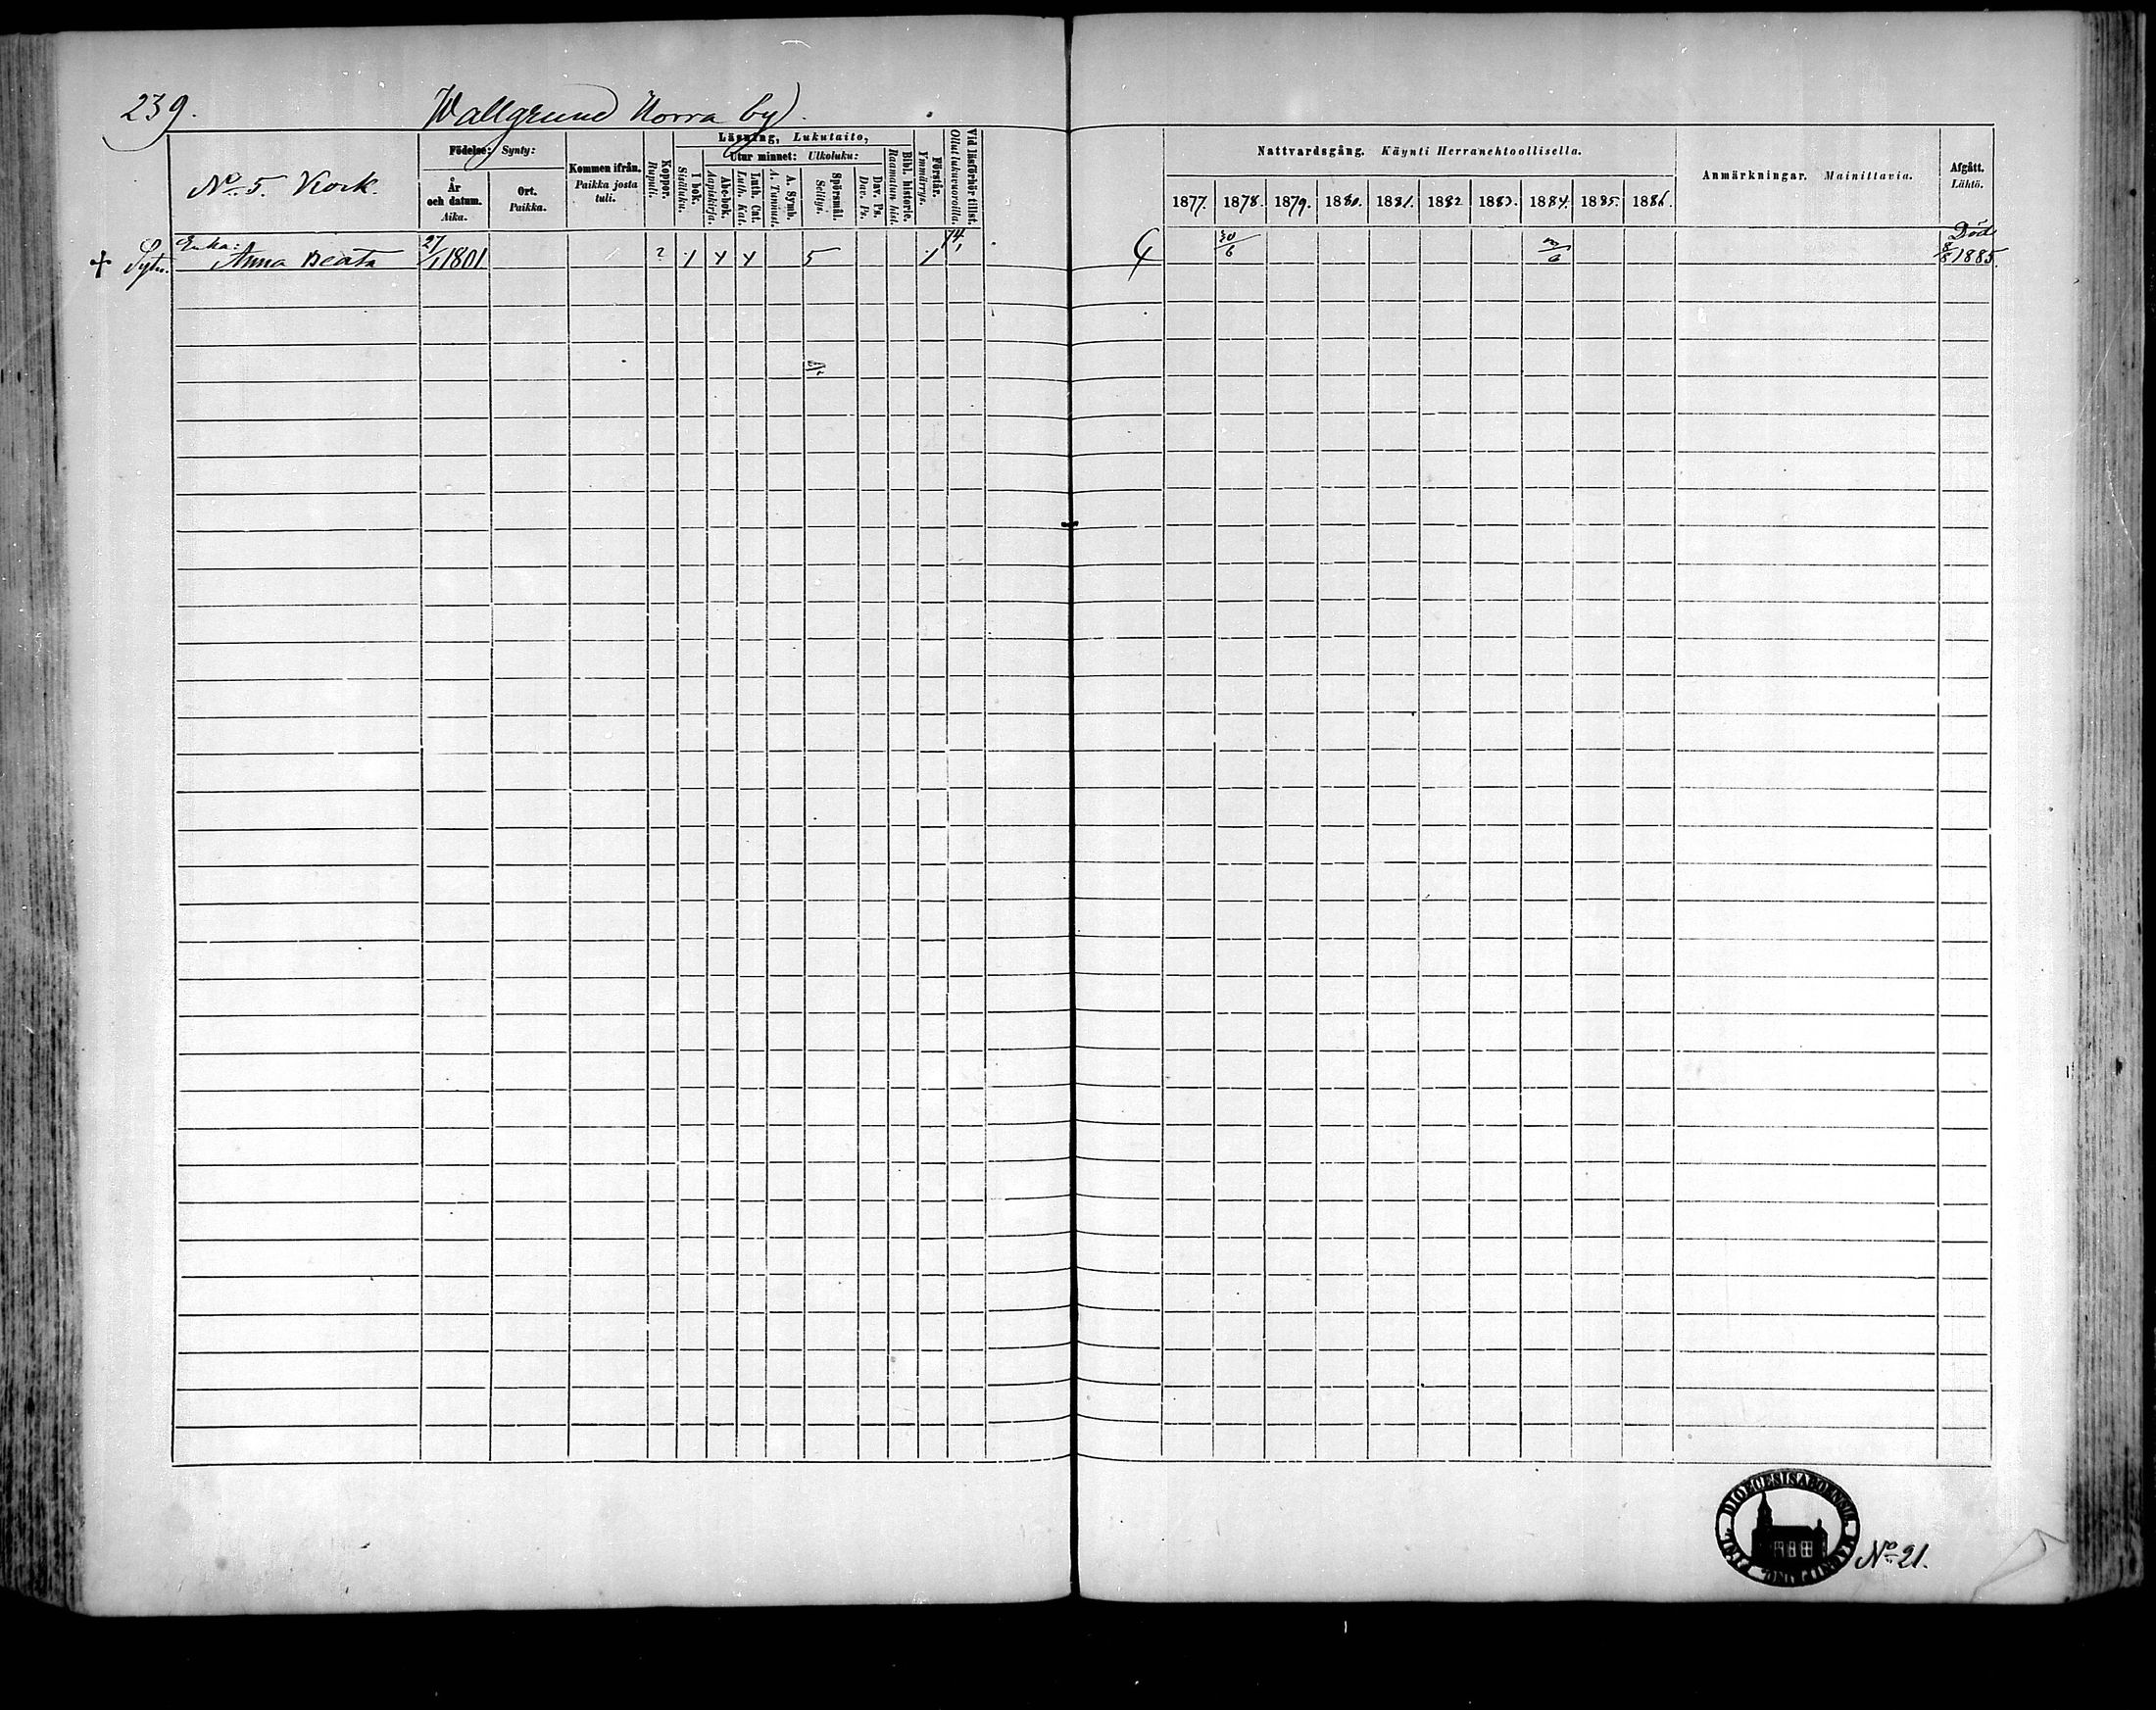 239. Wallgrund Norra by.
No 5. Kock.
Födelse: Synty:
År och datum. Aika.
Ort. Paikka.
Kommen ifrån. Paikka josta tuli.
Koppor. Rupuli.
Läsning, Lukutaito,
I bok. Sisäluku.
Utur minnet: Ulkoluku:
Abc-bok. Aapiskirja.
Luth. Cat. Luth. Kat.
A. Symb. A. Tunnust.
Spörsmål. Selitys.
Dav. Ps. Dav. Ps.
Bibl. historie. Raamatun hist.
Förstår. Ymmärrys.
Vid läsförhör tillst. Ollut lukuvuoroilla.
Nattvardsgång. Käynti Herranehtoollisella.
1877. 1878. 1879. 1880. 1881. 1882 1883. 1884. 1885. 1886.
Anmärkningar. Mainittavia.
Afgått. Lähtö.
+ Sytn. Enka: Anna Beata 27/1 1801 ? 5 30/6 Död 8/8 1885.
DIOECESIS ABOENSIS
No 21.